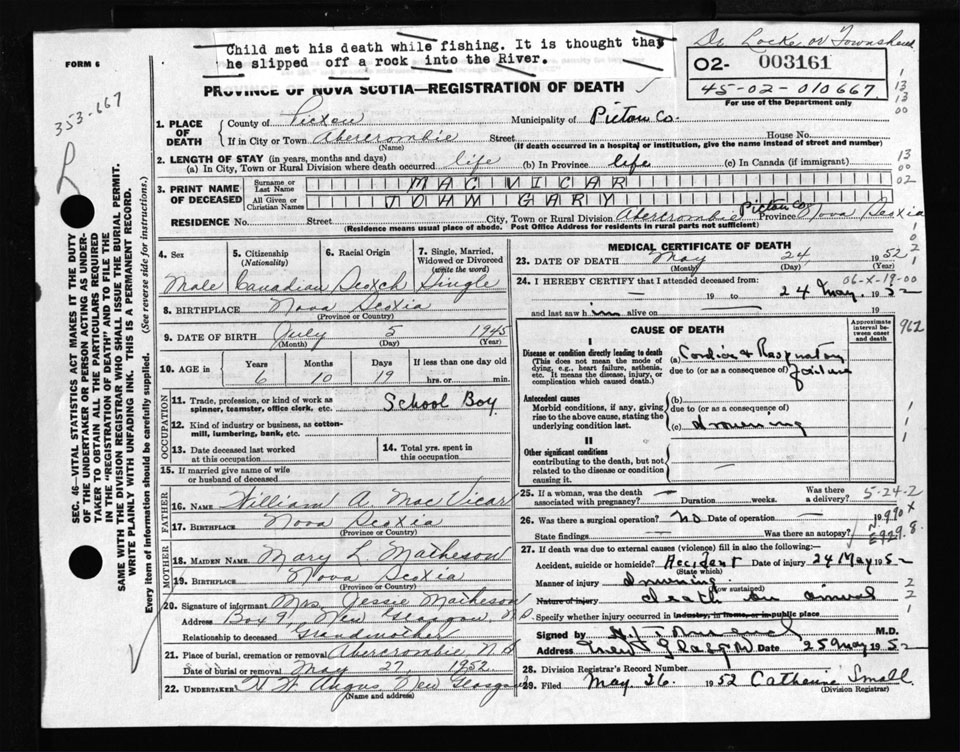 Child met his death while fishing. It is thought that
he slipped off a rook into the River.
FORM 6
Dr Locke or Townshend
02- 003161
45-02-010667
For use of the Department only
353-667
PROVINCE OF NOVA SCOTIA—REGISTRATION OF DEATH
1. PLACE OF DEATH
County of Pictou Municipality of Pictou Co.
If in City or Town Abercrombie Street House No.
(Name) (If death occurred in a hospital or institution, give the name instead of street and number)
2. LENGTH OF STAY (in years, months and days)
(a) In City, Town or Rural Division where death occurred life (b) In Province life (c) In Canada (if immigrant)
3. PRINT NAME OF DECEASED
Surname or Last Name MAC VICAR
All Given or Christian Names JOHN GARY
RESIDENCE No. Street City, Town or Rural Division Abercrombie Pictou Co Province Nova Scotia
(Residence means usual place of abode. Post Office Address for residents in rural parts not sufficient)
4. Sex Male
5. Citizenship (Nationality) Canadian
6. Racial Origin Scotch
7. Single, Married, Widowed or Divorced (write the word) Single
8. BIRTHPLACE Nova Scotia
(Province or Country)
9. DATE OF BIRTH July 5 1945
(Month) (Day) (Year)
10. AGE in Years 6 Months 10 Days 19 If less than one day old hrs. or min.
OCCUPATION
11. Trade, profession, or kind of work as spinner, teamster, office clerk, etc. School Boy
12. Kind of industry or business, as cotton-mill, lumbering, bank, etc.
13. Date deceased last worked at this occupation
14. Total yrs. spent in this occupation
15. If married give name of wife or husband of deceased
FATHER
16. NAME William A. MacVicar
17. BIRTHPLACE Nova Scotia
(Province or Country)
MOTHER
18. MAIDEN NAME Mary L Matheson
19. BIRTHPLACE Nova Scotia
(Province or Country)
20. Signature of informant Mrs. Jessie Matheson
Address Box 91 New Glasgow, N.S.
Relationship to deceased Grandmother
21. Place of burial, cremation or removal Abercrombie, N.S
Date of burial or removal May 27, 1952.
22. UNDERTAKER H W Angus, New Glasgow
(Name and address)
MEDICAL CERTIFICATE OF DEATH
23. DATE OF DEATH May 24 1952
(Month) (Day) (Year)
06-X-19-00
24. I HEREBY CERTIFY that I attended deceased from:
— 19 to 24 May 1952
and last saw him alive on — 19
CAUSE OF DEATH
Approximate interval between onset and death
962
I
Disease or condition directly leading to death
(This does not mean the mode of dying, e.g., heart failure, asthenia, etc. It means the disease, injury, or complication which caused death.)
(a) Cardiac & Respiratory failure
due to (or as a consequence of)
Antecedent causes
Morbid conditions, if any, giving rise to the above cause, stating the underlying condition last.
(b)
due to (or as a consequence of)
(c) drowning
II
Other significant conditions
contributing to the death, but not related to the disease or condition causing it.
25. If a woman, was the death associated with pregnancy? — Duration weeks. Was there a delivery?
5-24-2
26. Was there a surgical operation? NO Date of operation — 19
N990X
State findings — Was there an autopsy?
E929.8
27. If death was due to external causes (violence) fill in also the following:—
Accident, suicide or homicide? Accident Date of injury 24 May 1952
(State which)
Manner of injury Drowning
(How sustained)
Nature of injury death on arrival
Specify whether injury occurred in industry, in home, or in public place
Signed by M.D.
Address New Glasgow Date 25 May 1952
28. Division Registrar's Record Number
29. Filed May. 26. 1952 Catherine Small.
(Division Registrar)
SEC. 46—VITAL STATISTICS ACT MAKES IT THE DUTY
OF THE UNDERTAKER OR PERSON ACTING AS UNDER-
TAKER TO OBTAIN ALL THE PARTICULARS REQUIRED
IN THE "REGISTRATION OF DEATH" AND TO FILE THE
SAME WITH THE DIVISION REGISTRAR WHO SHALL ISSUE THE BURIAL PERMIT.
WRITE PLAINLY WITH UNFADING INK. THIS IS A PERMANENT RECORD.
Every item of information should be carefully supplied. (See reverse side for instructions.)